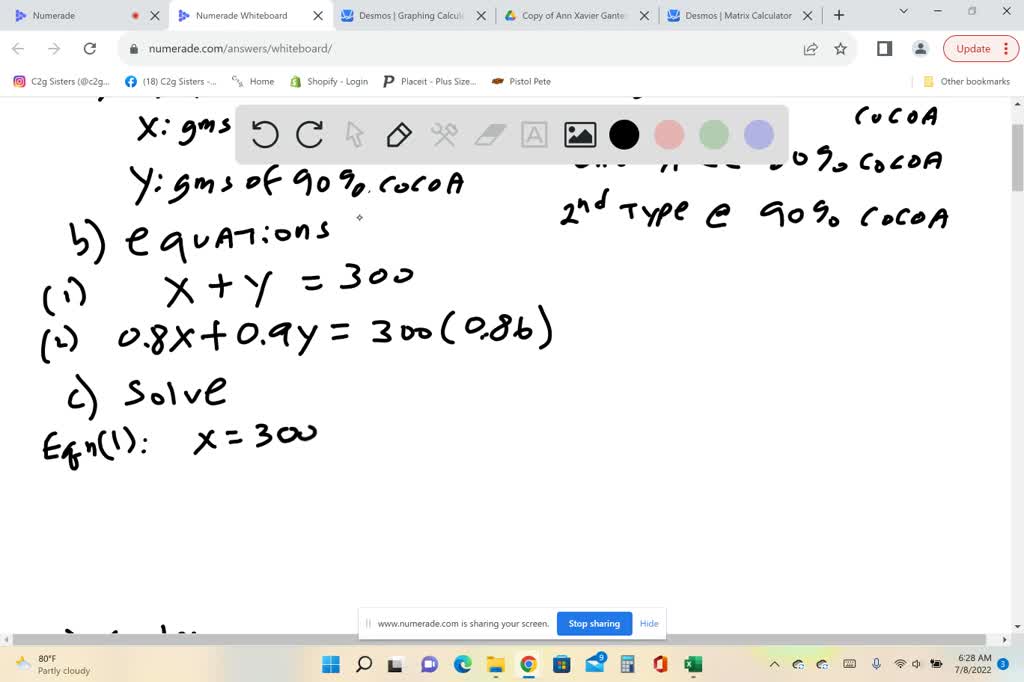 Numerade
Numerade Whiteboard
Desmos | Graphing Calcul
Copy of Ann Xavier Gante
Desmos | Matrix Calculator
numerade.com/answers/whiteboard/
Update
C2g Sisters (@c2g...
(18) C2g Sisters -...
Home
Shopify - Login
Placeit - Plus Size...
Pistol Pete
Other bookmarks
X: gms
COCOA
COCOA
Y: gms of 90%. COCOA
2nd TYPE @ 90% COCOA
b) equations
(1) X + Y = 300
(2) 0.8X + 0.9Y = 300(0.86)
c) solve
Eqn(1): X = 300
www.numerade.com is sharing your screen.
Stop sharing
Hide
80°F
Partly cloudy
6:28 AM
7/8/2022
3